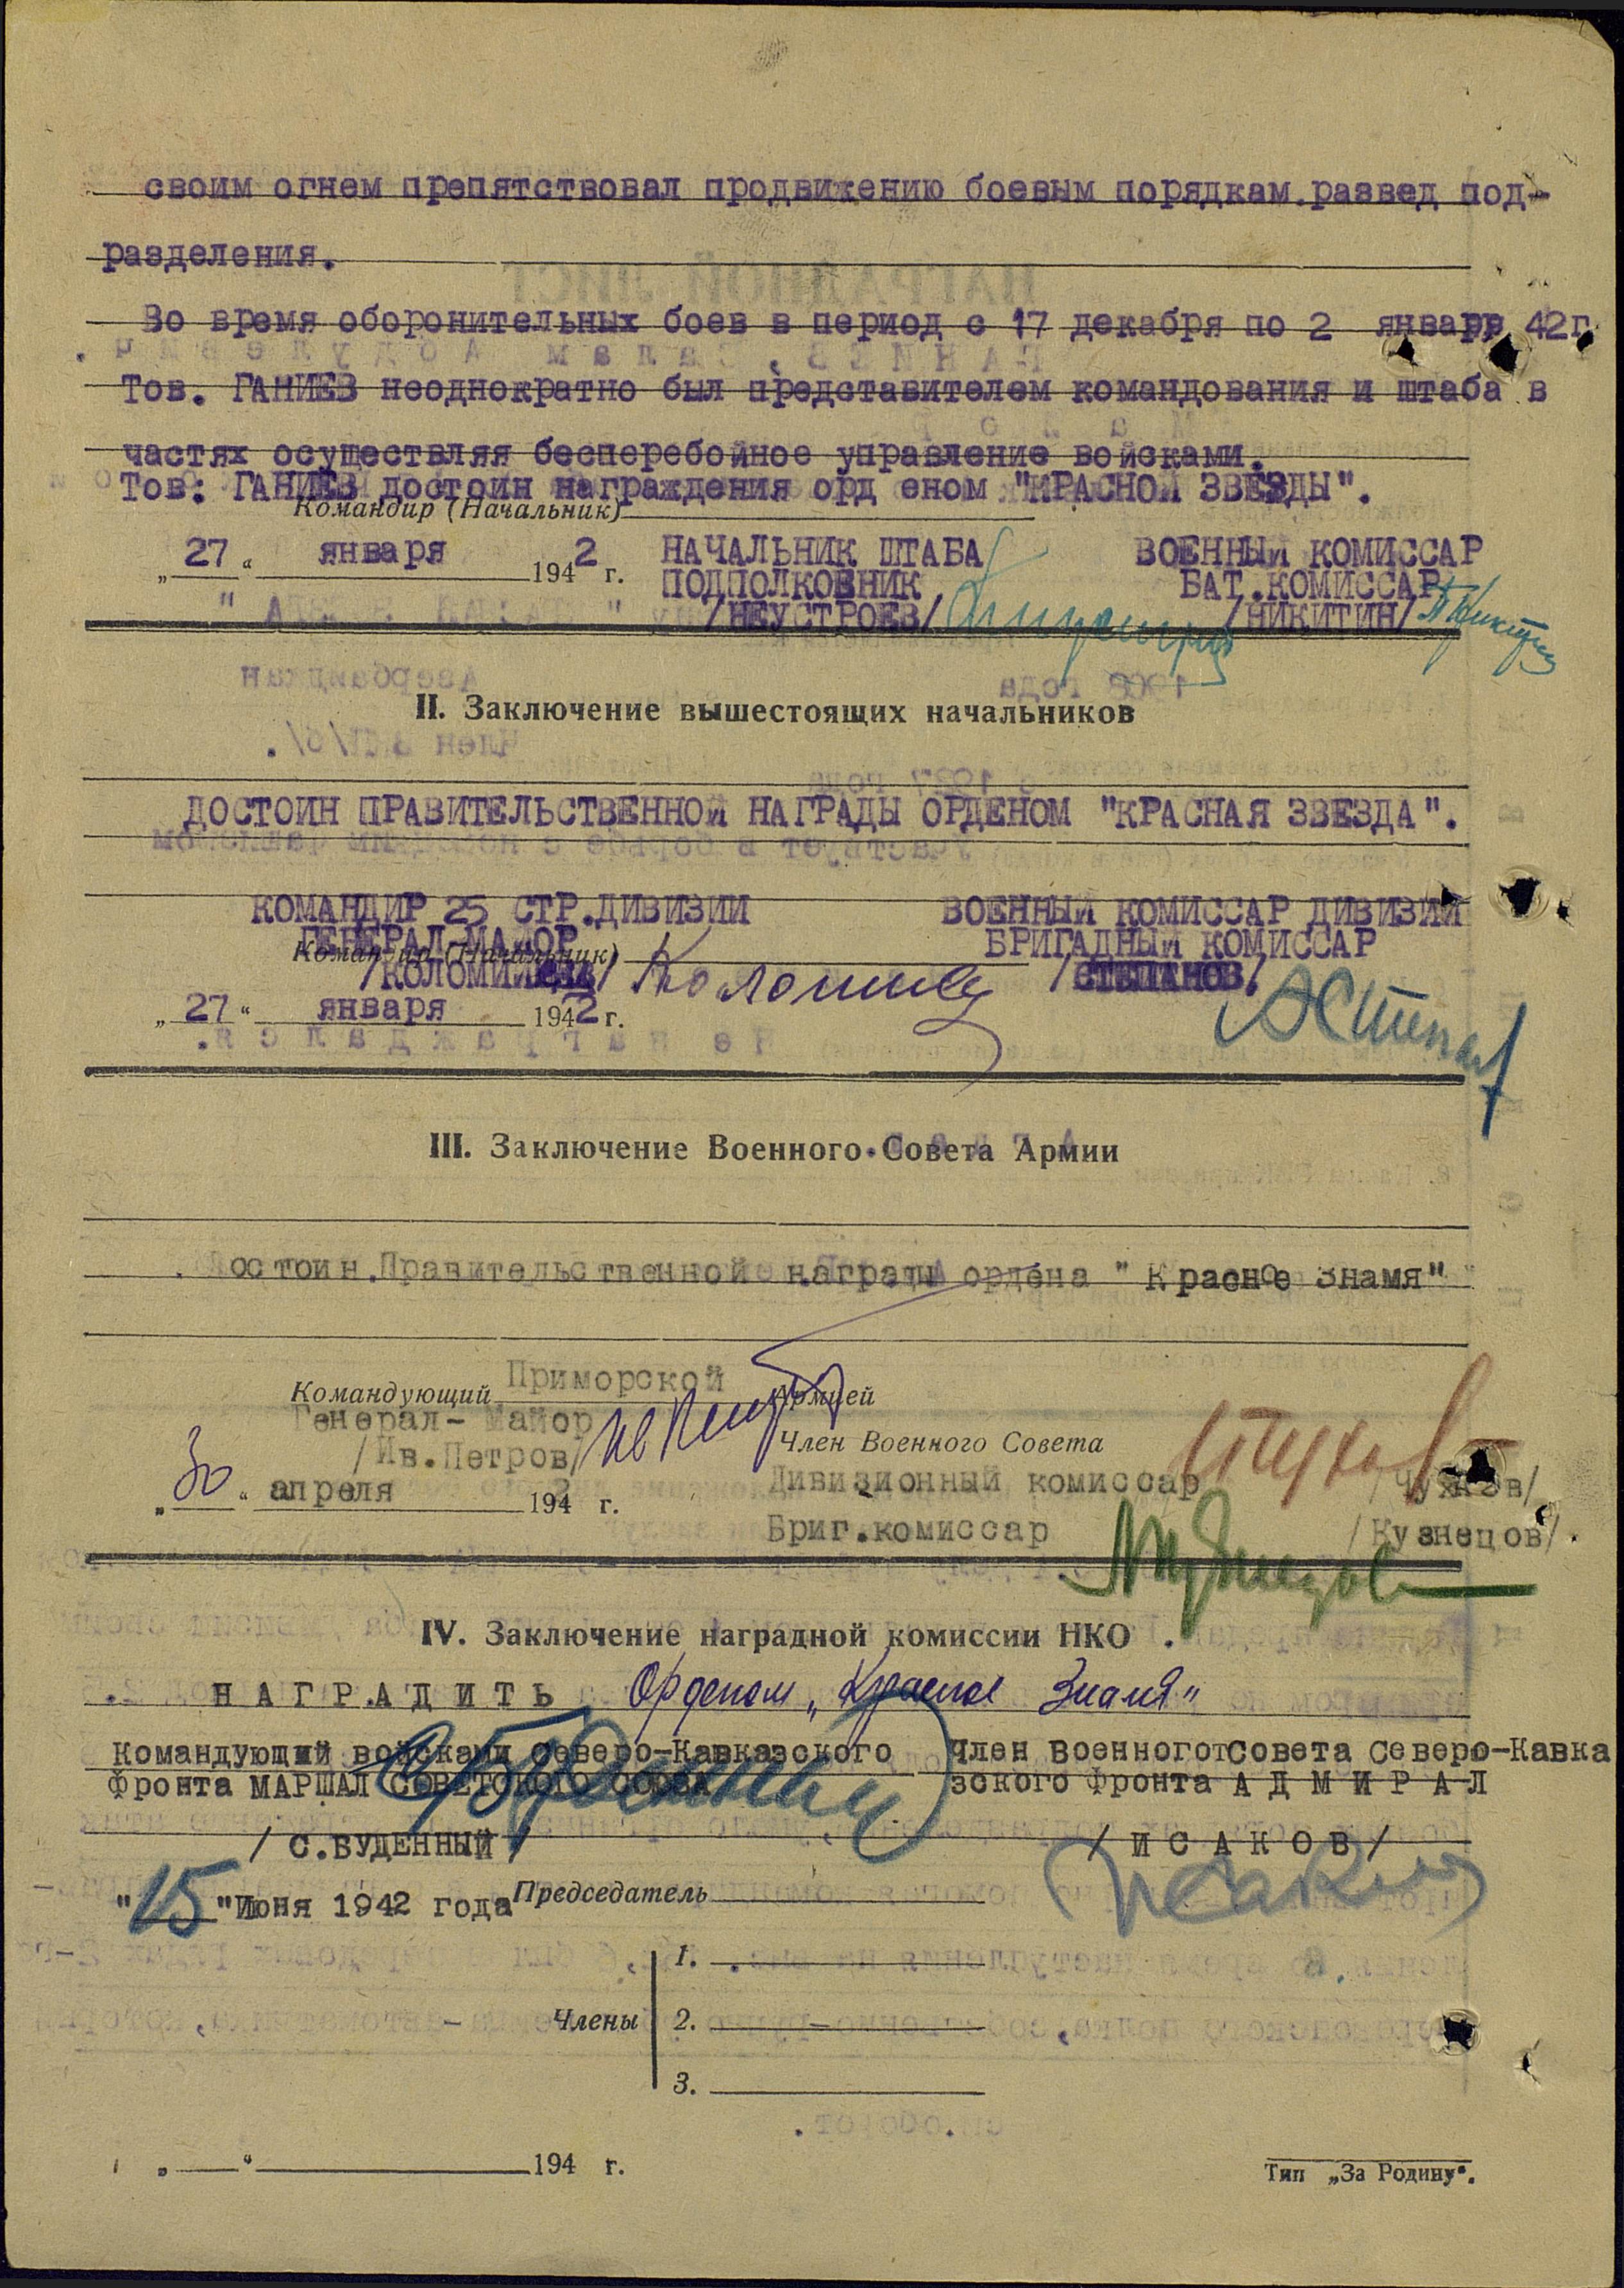 своим огнем препятствовал продвижению боевым порядкам.развед под-
разделения.
Во время оборонительных боев в период с 17 декабря по 2 января 42г.
Тов. ГАНИЕВ неоднократно был представителем командования и штаба в
частях осуществляя бесперебойное управление войсками.
Тов: ГАНИЕВ достоин награждения орд еном "КРАСНОЙ ЗВЕЗДЫ".
Командир (Начальник)
„27“ января 1942 г. НАЧАЛЬНИК ШТАБА ВОЕННЫЙ КОМИССАР
ПОДПОЛКОВНИК БАТ.КОМИССАР
/НЕУСТРОЕВ/ /НИКИТИН/
II. Заключение вышестоящих начальников
ДОСТОИН ПРАВИТЕЛЬСТВЕННОЙ НАГРАДЫ ОРДЕНОМ "КРАСНАЯ ЗВЕЗДА".
КОМАНДИР 25 СТР.ДИВИЗИИ ВОЕННЫЙ КОМИССАР ДИВИЗИИ
ГЕНЕРАЛ-МАЙОР БРИГАДНЫЙ КОМИССАР
Командир (Начальник)
/КОЛОМИЕЦ/ /СТЕПАНОВ/
„27“ января 1942 г.
III. Заключение Военного Совета Армии
Достоин Правительственной награды ордена "Красное Знамя"
Командующий Приморской Армией
Генерал- Майор
/Ив.Петров/ Член Военного Совета
Дивизионный комиссар /Чухнов/
„30“ апреля 194 г.
Бриг.комиссар /Кузнецов/.
IV. Заключение наградной комиссии НКО
НАГРАДИТЬ Орденом „Красное Знамя“
Командующий войсками Северо-Кавказского Член Военного Совета Северо-Кавка
фронта МАРШАЛ СОВЕТСКОГО СОЮЗА зского фронта АДМИРАЛ
/ С.БУДЕННЫЙ / / ИСАКОВ /
"15"Июня 1942 года Председатель
1.
Члены 2.
3.
„ “ 194 г.
Тип „За Родину“.